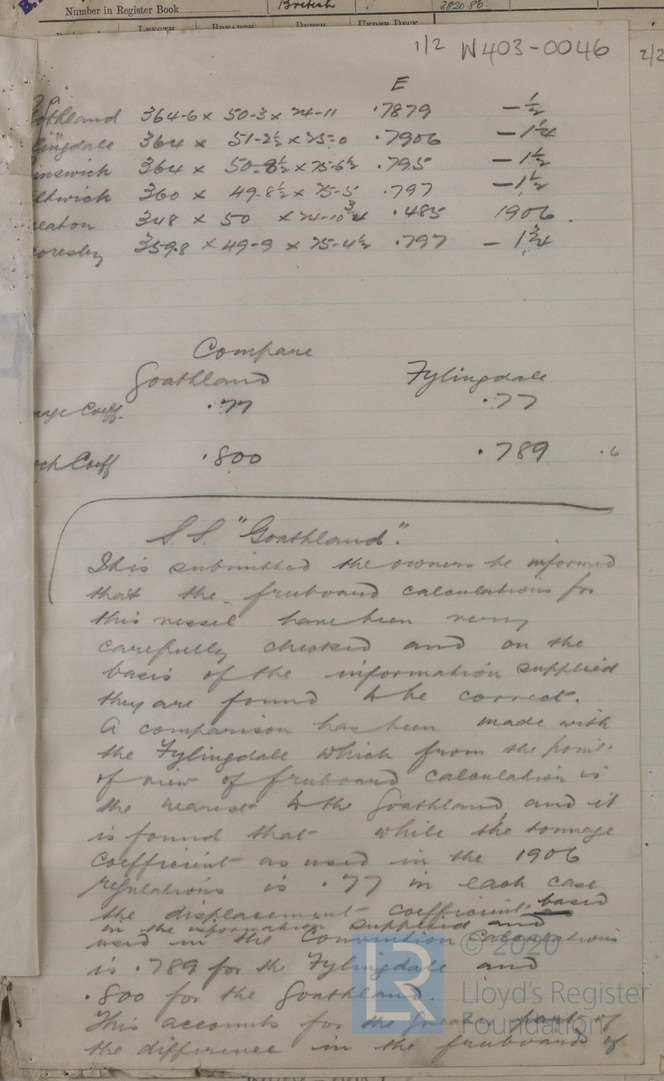 Number in Register Book British 382086
LENGTH BREADTH DEPTH UNDER DECK
1/2 W403-0046 2/2
E
oathland 364-6 x 50-3 x 24-11 .7879 - ½
lingdale 364 x 51-2½ x 25-0 .7906 - 1¼
inswick 364 x 50-8½ x 25-6½ .795 - 1½
ltwick 360 x 49-8½ x 25-5 .797 - 1½
eaton 348 x 50 x 24-10¾ .485 1906.
coresby 359.8 x 49-9 x 25-4½ .797 - 1¾
Compare
Goathland Fylingdale
nage Coeff. .77 .77
ck Coeff .800 .789 .6
S.S. "Goathland".
This submitted the owners be informed
that the freeboard calculations for
this vessel have been very
carefully checked and on the
basis of the information supplied
they are found to be correct.
A comparison has been made with
the Fylingdale which from the point
of view of freeboard calculation is
the nearest to the Goathland, and it
is found that while the tonnage
coefficient as used in the 1906
regulations is .77 in each case
the displacement coefficient, based
on the information supplied and
used in the Convention Calculations
is .789 for the Fylingdale and
.800 for the Goathland.
This accounts for the greater part of
the difference in the freeboard of
© 2020
LR
Lloyd's Register
Foundation